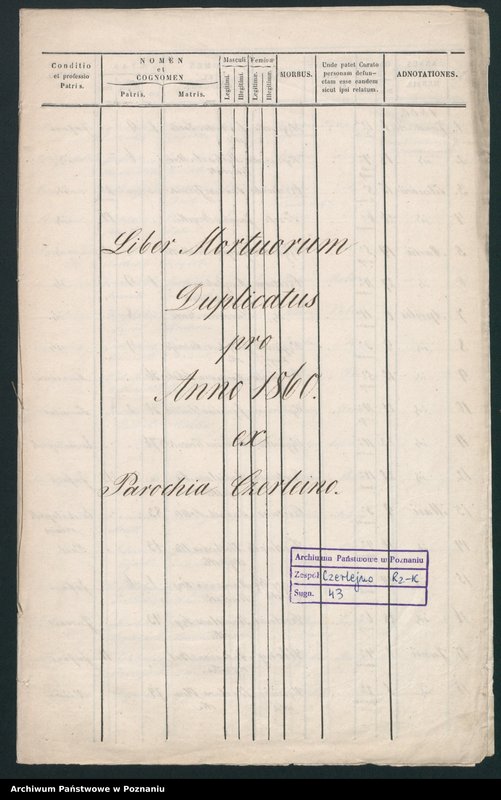 Conditio
et professio
Patris.
NOMEN
et
COGNOMEN
Patris.
Matris.
Masculi
Legitimi.
Illegitimi.
Feminæ
Legitimæ.
Illegitimæ.
MORBUS.
Unde patet Curato
personam defun-
ctam esse eandem
sicut ipsi relatum.
ADNOTATIONES.
Liber Mortuorum
Duplicatus
pro
Anno 1860.
ex
Parochia Czerleino.
Archiwum Państwowe w Poznaniu
Zespół Czerlejno Rz-K
Sygn. 43
Archiwum Państwowe w Poznaniu